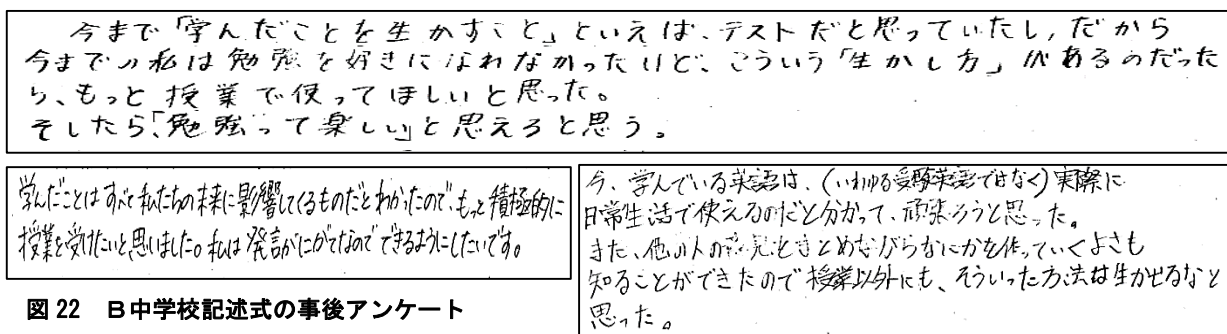 今まで「学んだことを生かすこと」といえば、テストだと思っていたし、だから
今までの私は勉強を好きになれなかったけど、こういう「生かし方」があるのだった
ら、もっと授業で使ってほしいと思った。
そしたら、「勉強って楽しい」と思えると思う。
学んだことはすべて私たちの未来に影響してくるものだとわかったので、もっと積極的に
授業を受けたいと思いました。私は発言がにがてなのでできるようにしたいです。
今、学んでいる英語は、(いわゆる受験英語ではなく)実際に
日常生活で使えるのだと分かって、頑張ろうと思った。
また、他の人の意見をまとめながらなにかを作っていくよさも
知ることができたので授業以外にも、そういった方法は生かせるなと
思った。
図22 B中学校記述式の事後アンケート